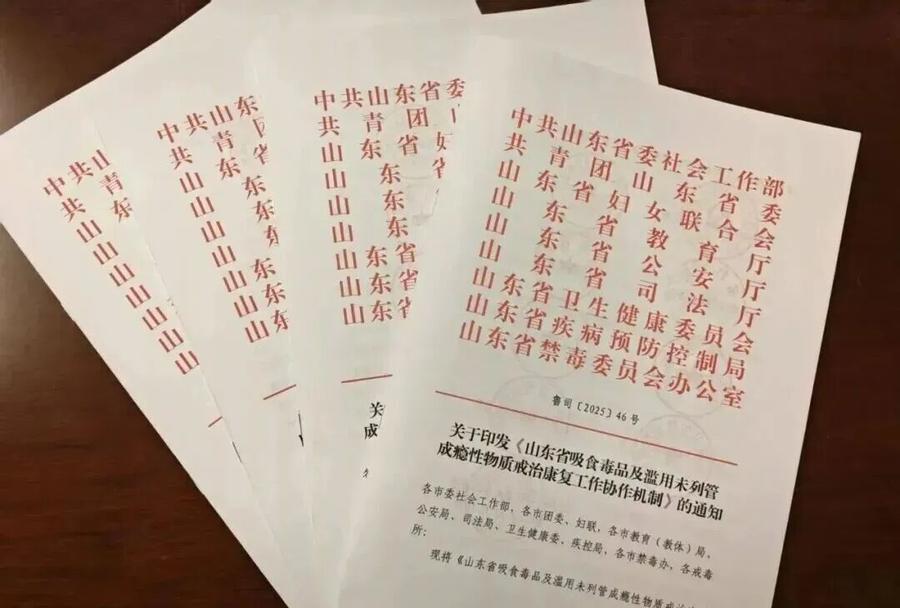 中共山
共青
山东
山
山
山
山
山
山
中共山东
共青团
山东省
山东
山东
山东
山东
山东
山东
中共山东省委
共青团
山东省妇
山东省
山东
山东
山东省
山东省
山东省
关
成
中共山东省委社会工作部
共青团山东省委
山东省妇女联合会
山东省教育厅
山东省公安厅
山东省司法厅
山东省卫生健康委员会
山东省疾病预防控制局
山东省禁毒委员会办公室
鲁司〔2025〕46号
关于印发《山东省吸食毒品及滥用未列管
成瘾性物质戒治康复工作协作机制》的通知
各市委社会工作部，各市团委、妇联，各市教育（教体）局、
公安局、司法局、卫生健康委、疾控局、各市禁毒办，各戒毒
所：
现将《山东省吸食毒品及滥用未列管成瘾性物质戒治